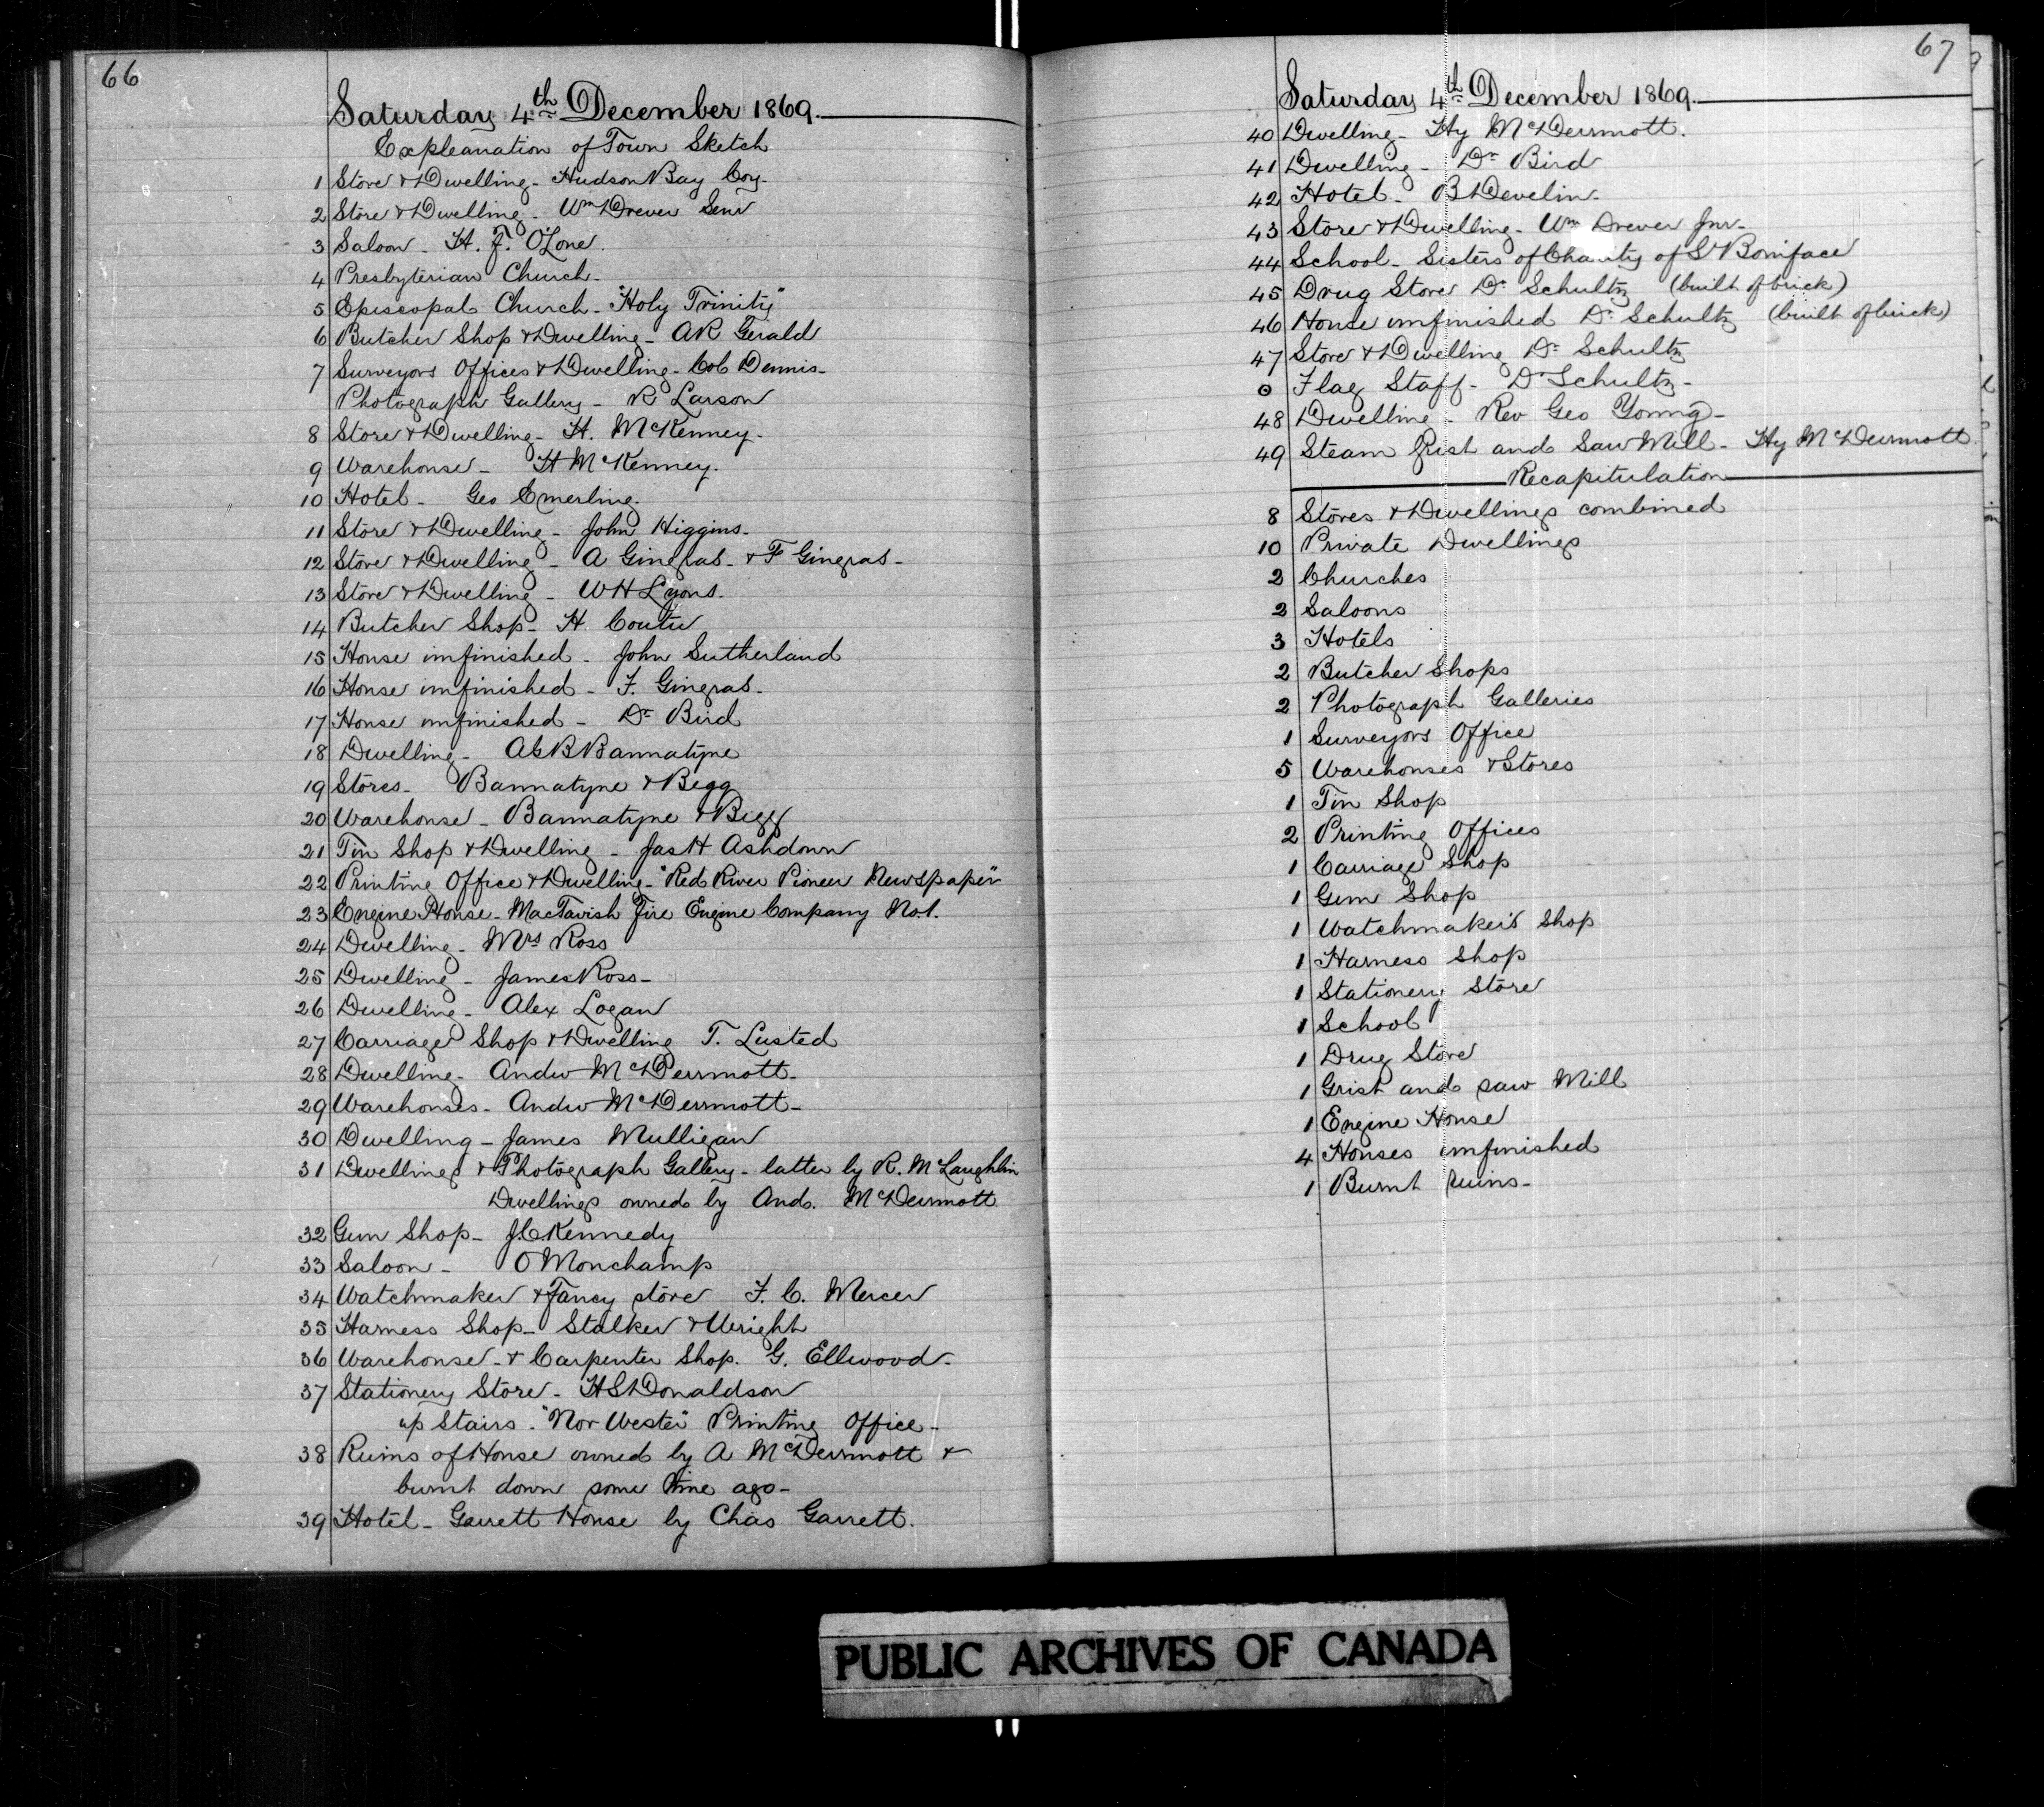 66
Saturday 4th December 1869.
Expleanation of Town Sketch
1 Store & Dwelling - Hudson Bay Coy -
2 Store & Dwelling - Wm Drever Senr
3 Saloon - H. F. O'Lone.
4 Presbyterian Church -
5 Episcopal Church - "Holy Trinity"
6 Butcher Shop & Dwelling - AR Gerald
7 Surveyors Offices & Dwelling - Col Dennis -
Photograph Gallery - R Larson
8 Store & Dwelling - H. McKenney -
9 Warehouse - H McKenney.
10 Hotel - Geo Emerling.
11 Store & Dwelling - John Higgins -
12 Store & Dwelling - A Gingras - & F Gingras -
13 Store & Dwelling - W H Lyons.
14 Butcher Shop - H. Coutu
15 House unfinished - John Sutherland
16 House unfinished - F. Gingras -
17 House unfinished - Dr Bird
18 Dwelling - AGB Bannatyne
19 Stores - Bannatyne & Begg
20 Warehouse - Bannatyne & Begg
21 Tin Shop & Dwelling - Jas H Ashdown
22 Printing Office & Dwelling - "Red River Pioneer Newspaper"
23 Engine House - MacTavish Fire Engine Company No 1.
24 Dwelling - Mrs Ross
25 Dwelling - James Ross -
26 Dwelling - Alex Logan
27 Carriage Shop & Dwelling T. Lusted
28 Dwelling - Andw McDermott -
29 Warehouses - Andw McDermott -
30 Dwelling - James Mulligan
31 Dwellings & Photograph Gallery - latter by R. McLaughlin
Dwellings owned by And. McDermott
32 Gun Shop - J. E Kennedy
33 Saloon - O Monchamp
34 Watchmaker & Fancy store F. C. Mercer
35 Harness Shop - Stalker & Wright
36 Warehouse - & Carpenter Shop. G. Ellwood -
37 Stationery Store - H S Donaldson
up Stairs - "Nor Wester" Printing Office -
38 Ruins of House owned by A McDermott &
burnt down some time ago -
39 Hotel - Garrett House by Chas Garrett.
67
Saturday 4th December 1869.
40 Dwelling - Hy McDermott.
41 Dwelling - Dr Bird
42 Hotel - B Develin -
43 Store & Dwelling - Wm Drever Jnr -
44 School - Sisters of Charity of St Boniface
45 Drug Store Dr Schultz (built of brick)
46 House unfinished Dr Schultz (built of brick)
47 Store & Dwelling Dr Schultz
Flag Staff - Dr Schultz -
48 Dwelling - Rev Geo Young -
49 Steam Grist and Saw Mill - Hy McDermott
Recapitulation
8 Stores & Dwellings combined
10 Private Dwellings
2 Churches
2 Saloons
3 Hotels
2 Butcher Shops
2 Photograph Galleries
1 Surveyors Office
5 Warehouses & Stores
1 Tin Shop
2 Printing Offices
1 Carriage Shop
1 Gun Shop
1 Watchmaker's Shop
1 Harness Shop
1 Stationery Store
1 School
1 Drug Store
1 Grist and saw Mill
1 Engine House
4 Houses unfinished
1 Burnt ruins -
PUBLIC ARCHIVES OF CANADA